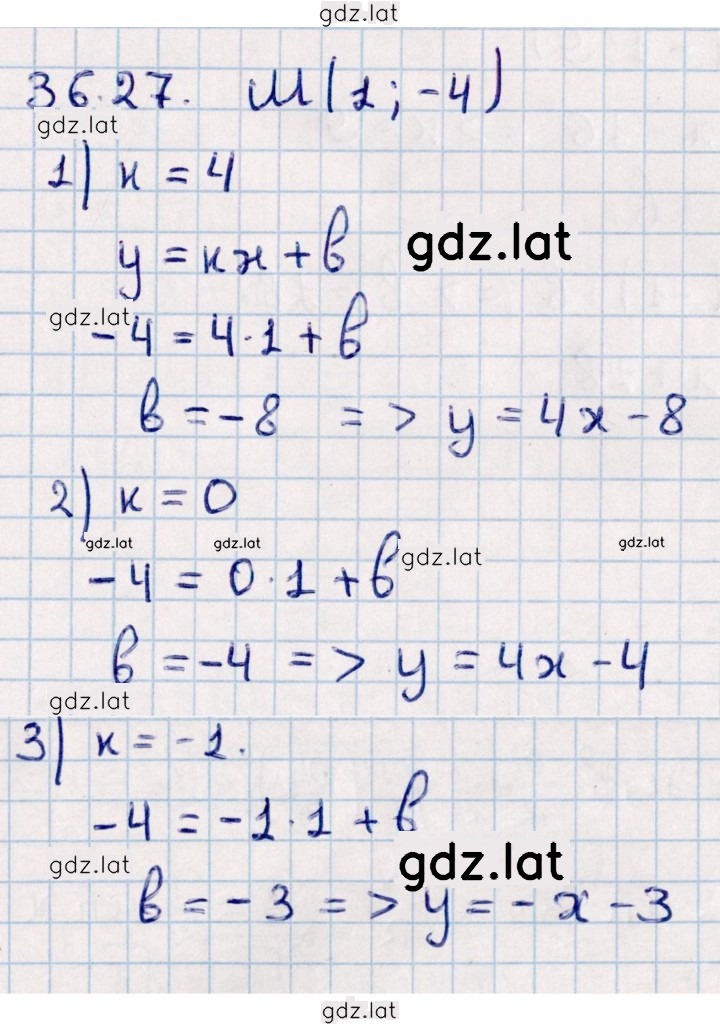 gdz.lat
36.27. M(1; -4)
gdz.lat
1) к = 4
y = кx + b
gdz.lat
gdz.lat
-4 = 4·1 + b
b = -8 => y = 4x - 8
2) к = 0
gdz.lat gdz.lat gdz.lat gdz.lat
-4 = 0·1 + b
b = -4 => y = 4x - 4
gdz.lat
3) к = -1.
-4 = -1·1 + b
gdz.lat gdz.lat
b = -3 => y = -x - 3
gdz.lat